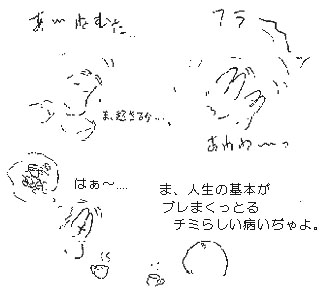 あ〜ねむた…
フラ
ま、起きるか…
あわわ〜っ
はぁ〜…
ま、人生の基本が
ブレまくっとる
チミらしい病いぢゃよ。